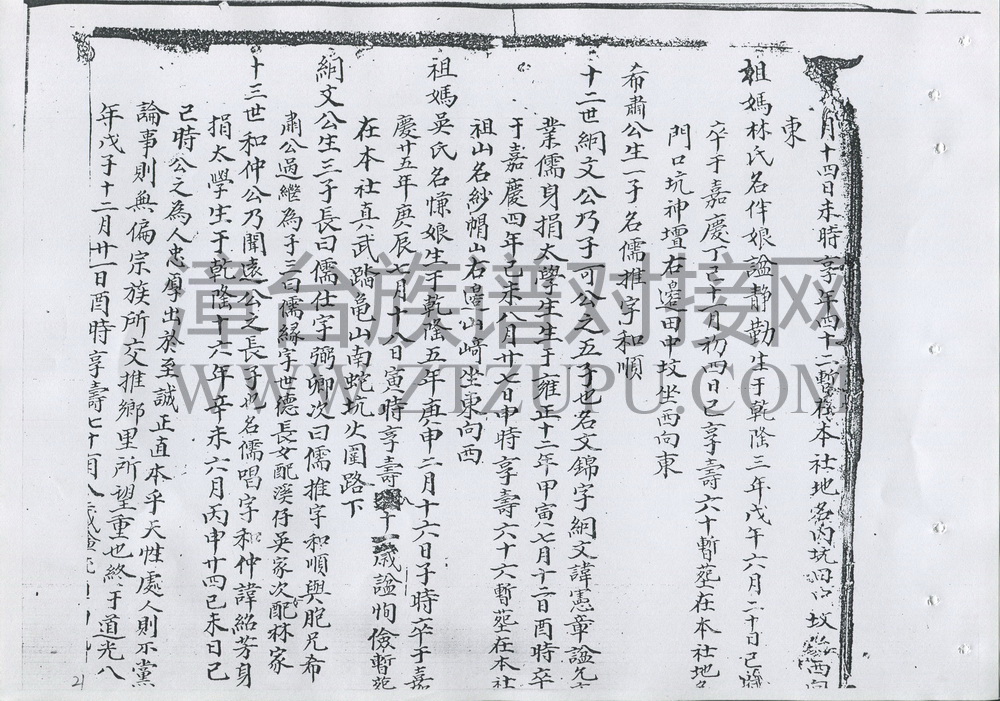 月十四日未時享年四十二暫在本社地名內坑田中坟坐西向
東
祖媽林氏名伴娘諡靜勤生于乾隆三年戊午六月二十日巳時
卒于嘉慶丁巳十月初四日巳享壽六十暫塟在本社地名
門口坑神壇右邊田中坟坐西向東
希肅公生一子名儒推字和順
十二世絅文公乃子可公之五子也名文錦字絅文諱憲章諡
業儒身捐太學生生于雍正十二年甲寅七月十二日酉時卒
于嘉慶四年己未八月廿七日申時享壽六十六暫塟在本社
祖山名紗帽山右邉山崎坐東向西
祖媽吳氏名慊娘生于乾隆五年庚申二月十六日子時卒于嘉
慶廿五年庚辰七月十八日寅時享壽八十一歲諡恂儉暫塟
在本社真武踏亀山南蛇坑火圍路下
絅文公生三子長曰儒仕字弼卿次曰儒推字和順與胞兄希
肅公過繼為子三曰儒緣字世德長女配溪仔吳家次配林家
十三世和仲公乃聞遠公之長子也名儒唱字和仲諱紹芳身
捐太學生于乾隆十六年辛未六月丙申廿四己未日己
巳時公之為人忠厚出於至誠正直本乎天性處人則不黨
論事則無偏宗族所交推鄉里所望重也終于道光八
年戊子十二月廿一日酉時享壽七十有八歲
漳台族譜对接网
WWW.ZTZUPU.COM
21